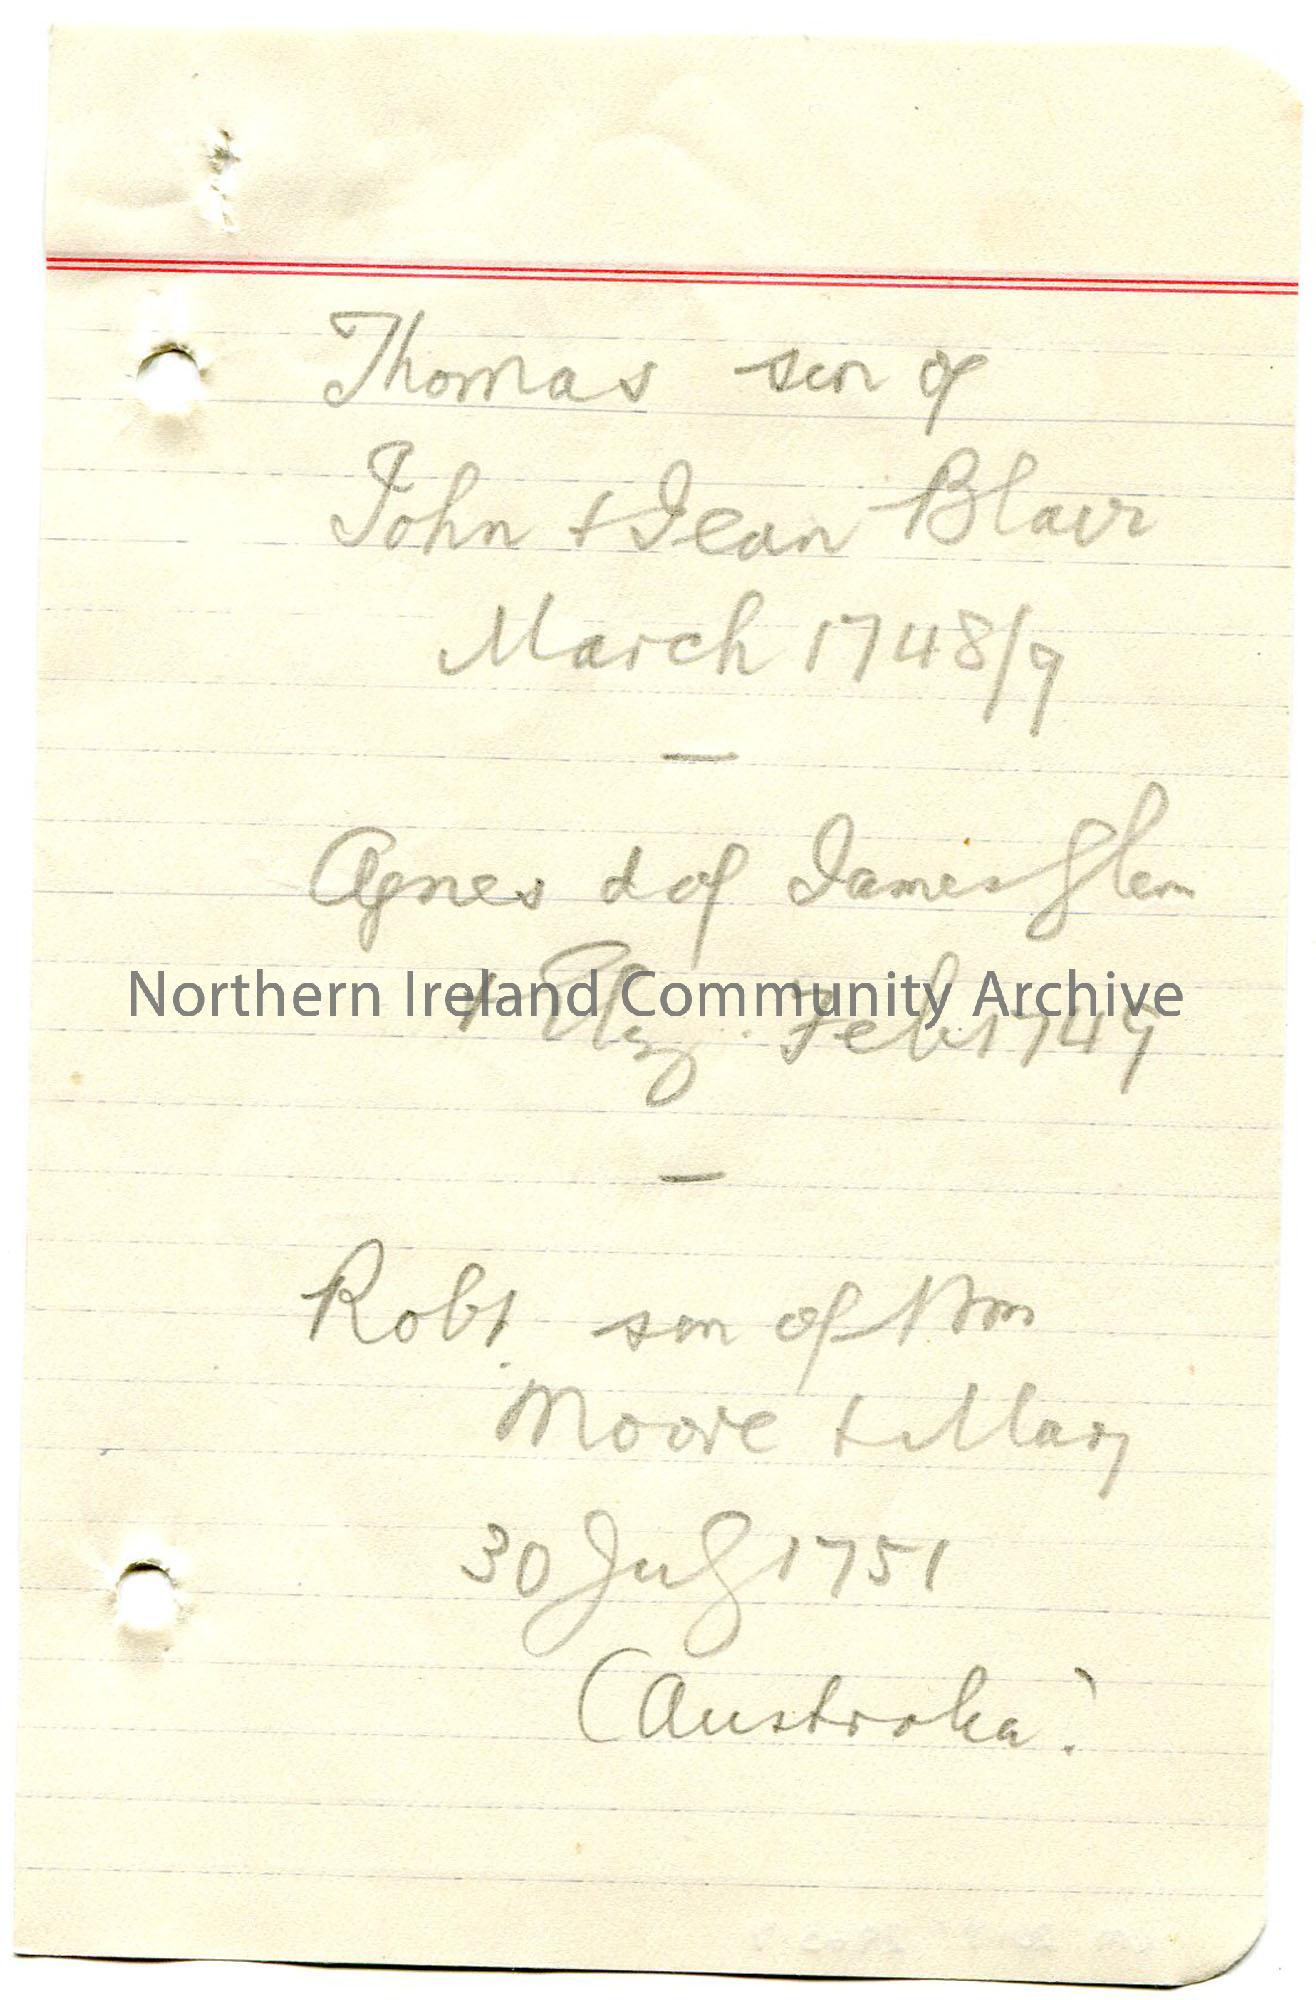 Thomas son of
John + Jean Blair
March 1748/9
—
Agnes d of James Glen
Northern Ireland Community Archive
+ Eliz. Feb 1749
—
Robt. son of Wm
Moore + Mary
30 July 1751
(Australia?